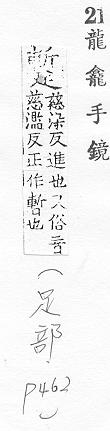 21 龍龕手鏡
蹔
慈染反進也又俗音
慈濫反正作暫也
(足部 P462)